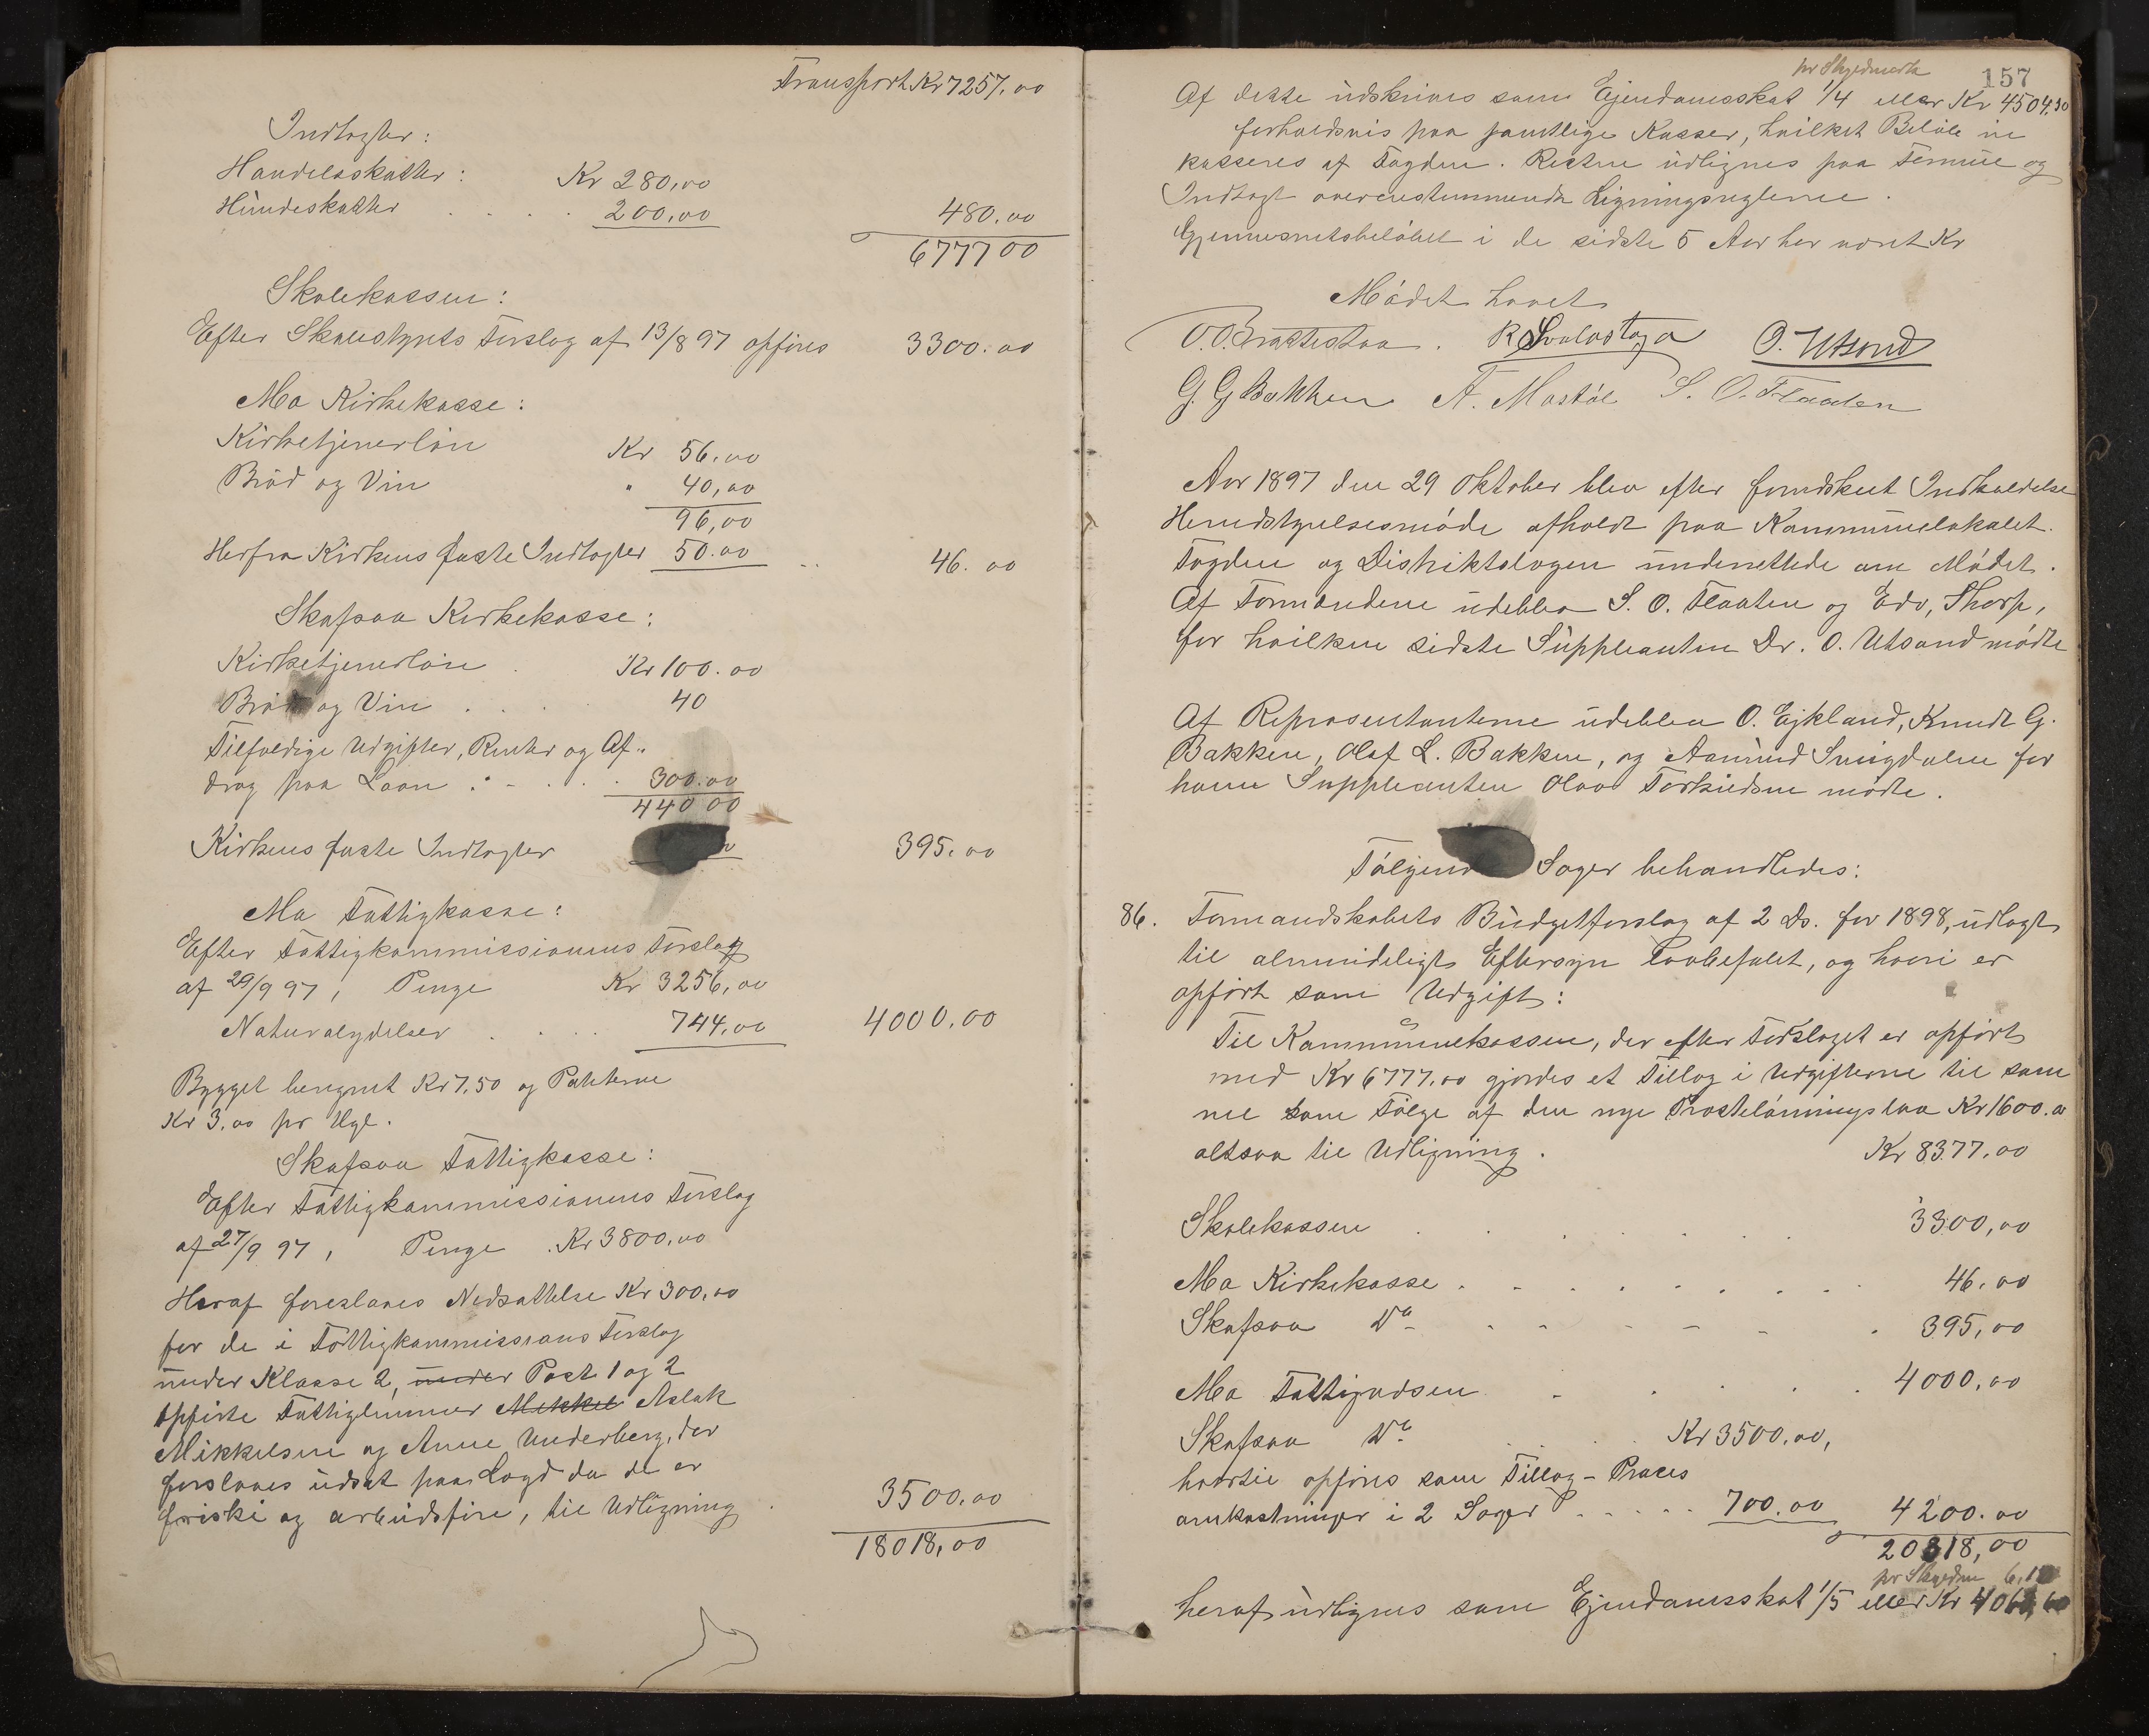 Transport Kr 7257.00
Indtægter:
Handelsskatter: Kr 280,00
Hundeskatter . . . . 200,00 480.00
6777 00
Skolekassen:
Efter Skolestyrets Forslag af 13/8 97 opføres 3300.00
Mo Kirkekasse:
Kirketjenerløn Kr 56.00
Brød og Vin " 40,00
96,00
Herfra Kirkens faste Indtægter 50.00 46.00
Skafsaa Kirkekasse:
Kirketjenerløn . Kr 100.00
Brød og Vin . . . 40
Tilfældige Udgifter, Renter og Af-
drag paa Laan . . . . 300.00
440 00
Kirkens faste Indtægter 395.00
Mo Fattigkasse:
Efter Fattigkommissionens Forslag
af 29/9 97, Penge Kr 3256,00
Naturalydelser . . . 744,00 4000.00
Bygget beregnet Kr 7,50 og Poteterne
Kr 3.00 pr Hgl.
Skafsaa Fattigkasse:
Efter Fattigkommissionens Forslag
af 27/9 97, Penge . Kr 3800,00
Heraf foreslaaes Nedsættelse Kr 300,00
for de i Fattigkommissions Forslag
under Klasse 2, under Post 1 og 2
opførte Fattiglemmer Mikkel Aslak
Mikkelsen og Anne Underberg, der
forslaaes udsat paa Lægd da de er
friske og arbeidsføre, til Udligning . 3500.00
18018,00
157
pr Skjedmark
Af dette udskrives som Ejendomsskat 1/4 eller Kr 4504,50
forholdsvis paa samtlige Kasser, hvilket Beløb in
kasseres af Fogden. Resten udlignes paa Formue og
Indtægt overensstemmende Ligningsreglerne.
Gjennemsnitsbeløbet i de sidste 5 Aar har været Kr
Mødet hævet
O. O. Brattestaa. R Svalastoga O. Utsond
G. G Bakken A. Mostøl S. O. Flaaten
Aar 1897 den 29 Oktober blev efter forudskeet Indkaldelse
Herredstyrelsesmøde afholdt paa Kommunelokalet.
Fogden og Distriktslægen underrettede om Mødet.
Af Formændene udeblev S. O. Flaaten og Edv, Shorp,
for hvilken sidste Suppleanten Dr. O. Utsond mødte
Af Repræsentanterne udeblev O. Ejkland, Knudt G.
Bakken, Olaf L. Bakken, og Aamund Smigdalen for
ham Suppleanten Olav Torkildsen mødte.
Følgende Sager behandledes:
86. Formandskabets Budgetforslag af 2 Ds. for 1898, udlagt
til almindeligt Eftersyn lovbefalet, og hvori er
opført som Udgift:
Til Kommunekassen, der efter Forslaget er opført
med Kr 6777.00 gjordes et Tillæg i Udgifterne til sam
me som Følge af den nye Prestelønningslov Kr 1600.00
altsaa til Udligning. Kr 8377.00
Skolekassen . . . . . . 3300,00
Mo Kirkekasse . . . . . . . . 46.00
Skafsaa Do . . . . . . 395,00
Mo Fattigvæsen . . . . 4000,00
Skafsaa Do . . . Kr 3500.00,
hvortil opføres som Tillæg - Proces
omkostninger i 2 Sager . . . . 700.00 4200.00
20318,00
pr Skyldm
heraf udlignes som Ejendomsskat 1/5 eller Kr